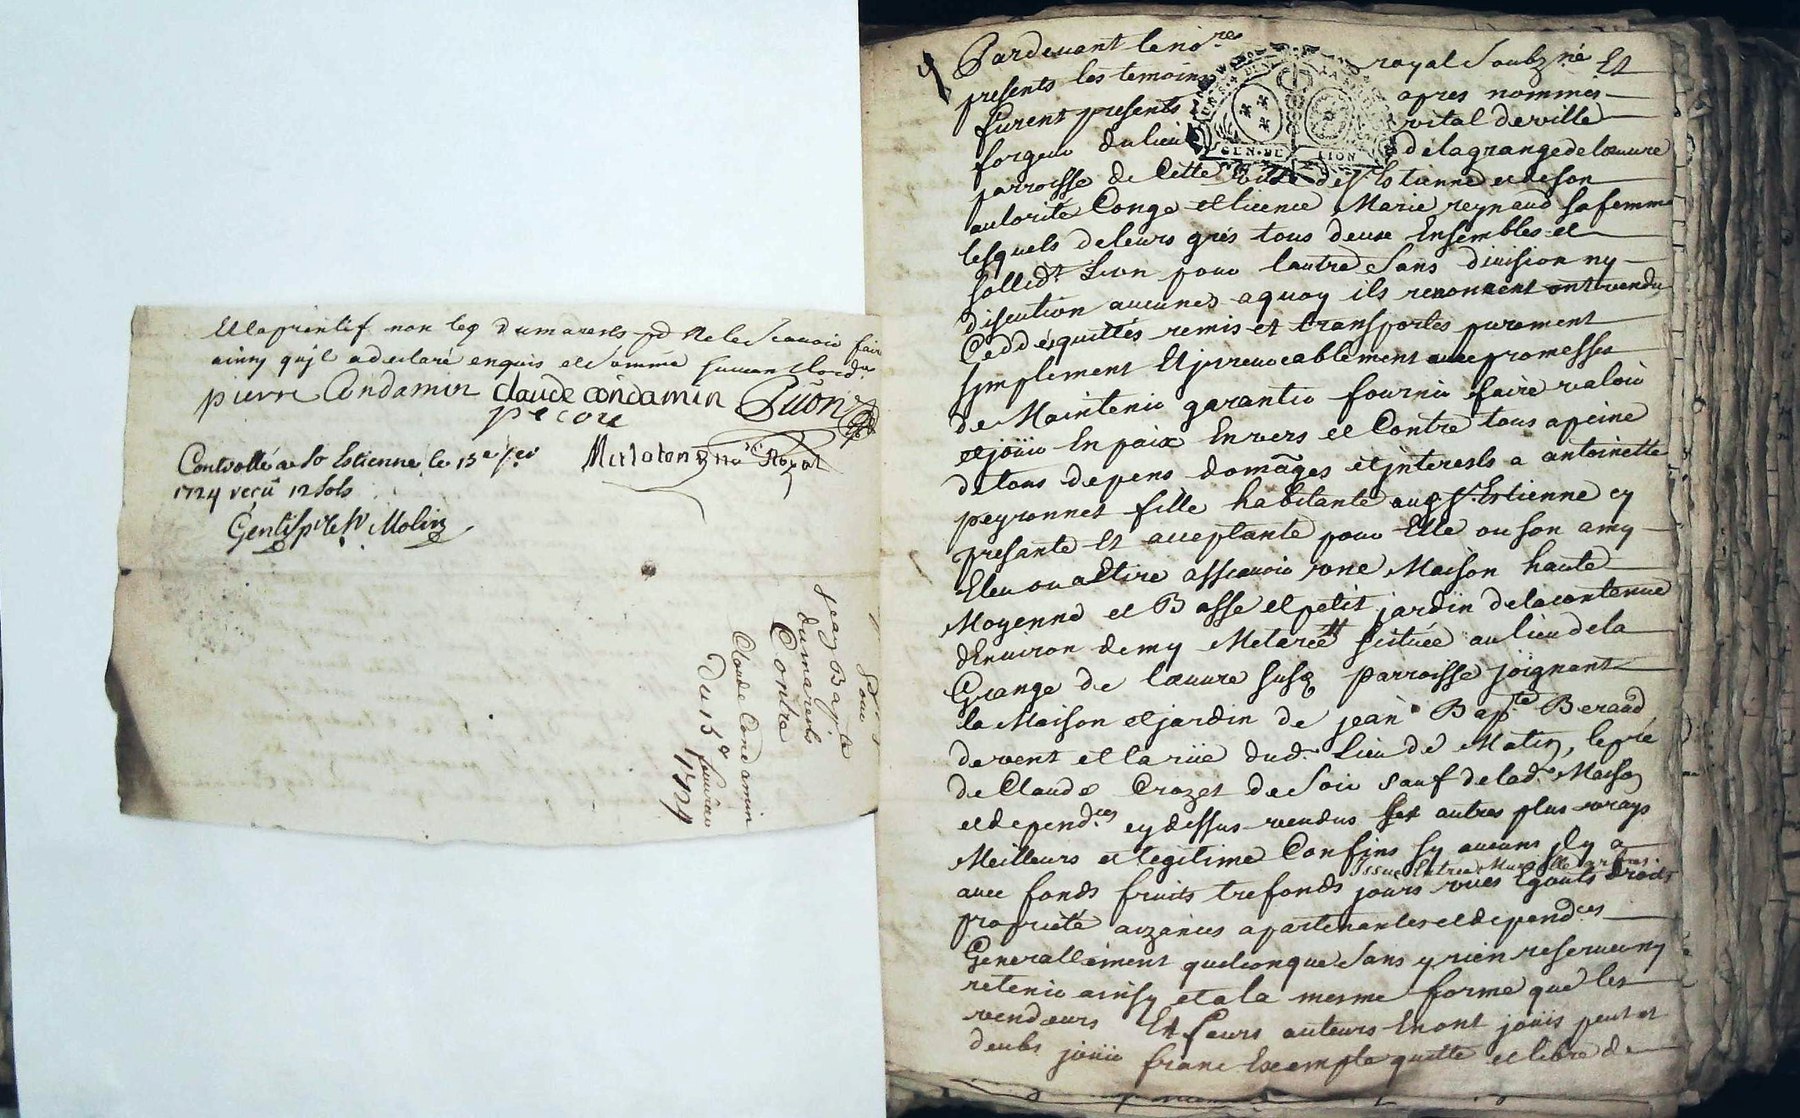 Et laprentif non leq dumarests pd ne le scavoir faire
ainsy qu'il a declaré enquis et sommé suivant lord.
pierre Condamin claude condamin
pecou
Royal
Controllé a St Estienne le 15e
1724 reçu 12 sols
Molin
pour
jean Bapte
dumarests
Contre
Claude Condamin
Du 13e fevrier
1724
Pardevant le nore royal soubzné Et
presents les temoins apres nommés
furent presents vital deville
forgeur du lieu de la grange de loeuvre
GEN. DE LION
parroisse de Cette ville de St Estienne et de son
autorité Congé et licence Marie reynaud sa femme
lesquels de leurs grés tous deux Ensembles et
sollidt Lun pour lautre sans division ny
discution aucunes a quoy ils renoncent ont vendu
Ceddés quittés remis et transportés purement
simplement Et jrrevocablement avec promesses
de Maintenir garantir fournir faire valoir
et joüir En paix Envers et Contre tous a peine
de tous depens domages et jnterests a antoinette
peyronnet fille habitante aud St Estienne cy
presante Et acceptante pour Elle ou son amy
Eleu ou a Elire asscavoir une Maison haute
Moyenne et Basse et petit jardin de la contenue
dEnviron demy Meterée scituée au lieu de la
Grange de loeuvre susd parroisse joignant
la Maison et jardin de jean Bapte Beraud
de vent et la rüe dud. Lieu de Matin, le pré
de Claude Crozet de soir sauf de lad. Maison
et dependces cy dessus vendus ses autres plus vrays
Meilleurs et legitime Confins sy aucuns jl y a
avec fonds fruits trefonds jours vües Egouts droits
propriété aizances apartenantes et dependces
Generallement quelconque sans y rien reserver ny
retenir ainsy et a la mesme forme que les
vendeurs Et leurs auteurs En ont joüis peut et
deubs joüir franc Exempte quitte et libre de